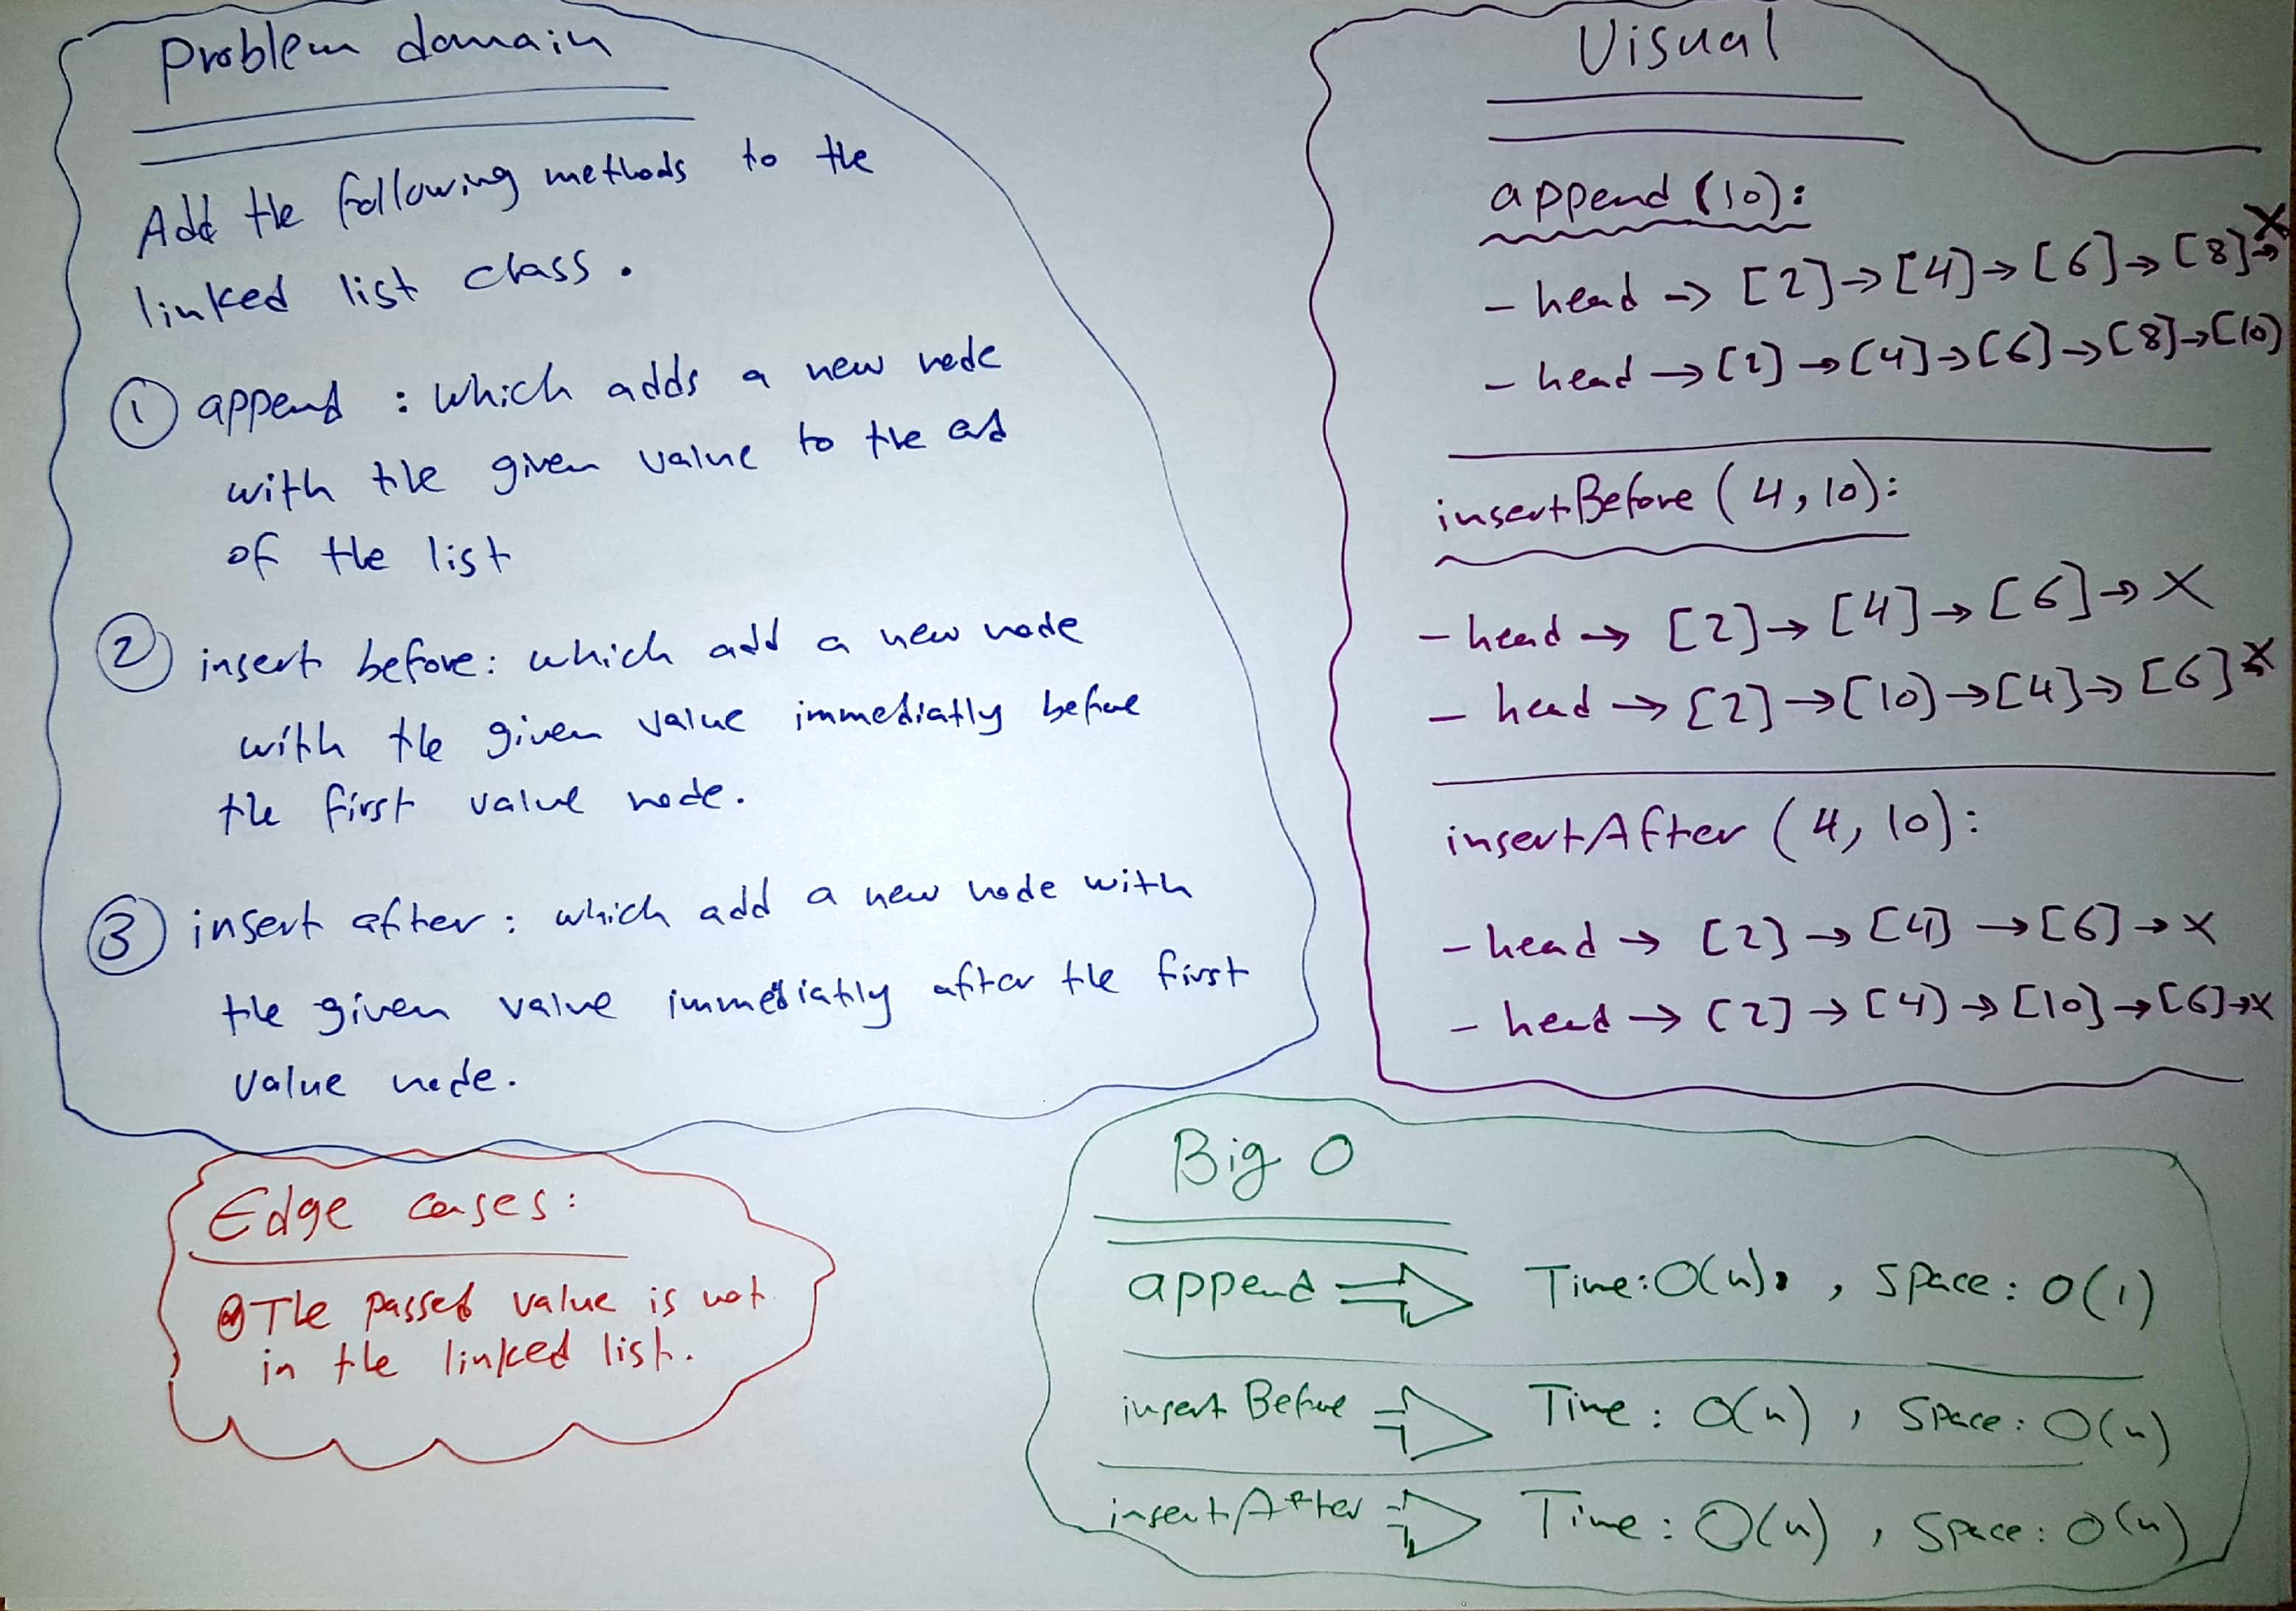 Problem domain
Add the following methods to the
linked list class.
① append : which adds a new node
with the given value to the end
of the list
② insert before: which add a new node
with the given value immediatly before
the first value node.
③ insert after: which add a new node with
the given value immediatly after the first
value node.
Edge cases:
The passed value is not
in the linked list.
Visual
append (10):
- head → [2] → [4] → [6] → [8] → X
- head → [2] → [4] → [6] → [8] → [10]
insertBefore (4, 10):
- head → [2] → [4] → [6] → X
- head → [2] → [10] → [4] → [6] → X
insertAfter (4, 10):
- head → [2] → [4] → [6] → X
- head → [2] → [4] → [10] → [6] → X
Big O
append ⇒ Time: O(n), Space: O(1)
insert Before ⇒ Time: O(n), Space: O(n)
insertAfter ⇒ Time: O(n), Space: O(n)